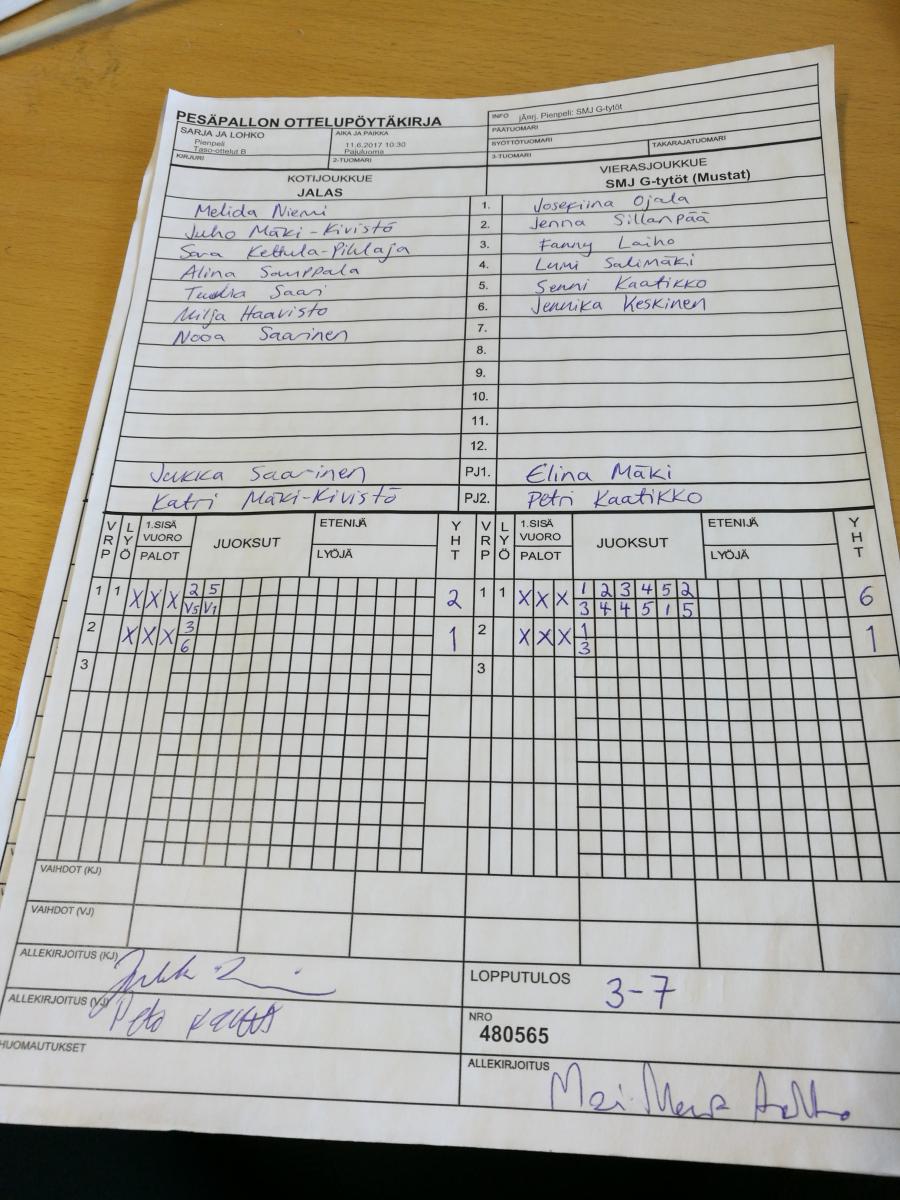 PESÄPALLON OTTELUPÖYTÄKIRJA
SARJA JA LOHKO
Pienpeli
Taso-ottelut B
AIKA JA PAIKKA
11.6.2017 10:30
Pajuluoma
KIRJURI
2-TUOMARI
INFO jÄnrj. Pienpeli: SMJ G-tytöt
PÄÄTUOMARI
SYÖTTÖTUOMARI
TAKARAJATUOMARI
3-TUOMARI
KOTIJOUKKUE
JALAS
VIERASJOUKKUE
SMJ G-tytöt (Mustat)
Melida Niemi 1. Josefiina Ojala
Juho Mäki-Kivistö 2. Jenna Sillanpää
Sara Kettula-Pihlaja 3. Fanny Laiho
Alina Samppala 4. Lumi Salimäki
Tuulia Saari 5. Senni Kaatikko
Milja Haavisto 6. Jennika Keskinen
Nooa Saarinen 7.
8.
9.
10.
11.
12.
Jukka Saarinen PJ1. Elina Mäki
Katri Mäki-Kivistö PJ2. Petri Kaatikko
VRP LYÖ 1.SISÄ VUORO PALOT JUOKSUT ETENIJÄ LYÖJÄ YHT VRP LYÖ 1.SISÄ VUORO PALOT JUOKSUT ETENIJÄ LYÖJÄ YHT
1 1 X X X 2 5 2 1 1 X X X 1 2 3 4 5 2 6
V5 V1 3 4 4 5 1 5
2 X X X 3 1 2 X X X 1 1
6 3
3 3
VAIHDOT (KJ)
VAIHDOT (VJ)
ALLEKIRJOITUS (KJ)
ALLEKIRJOITUS (VJ)
HUOMAUTUKSET
LOPPUTULOS 3-7
NRO
480565
ALLEKIRJOITUS